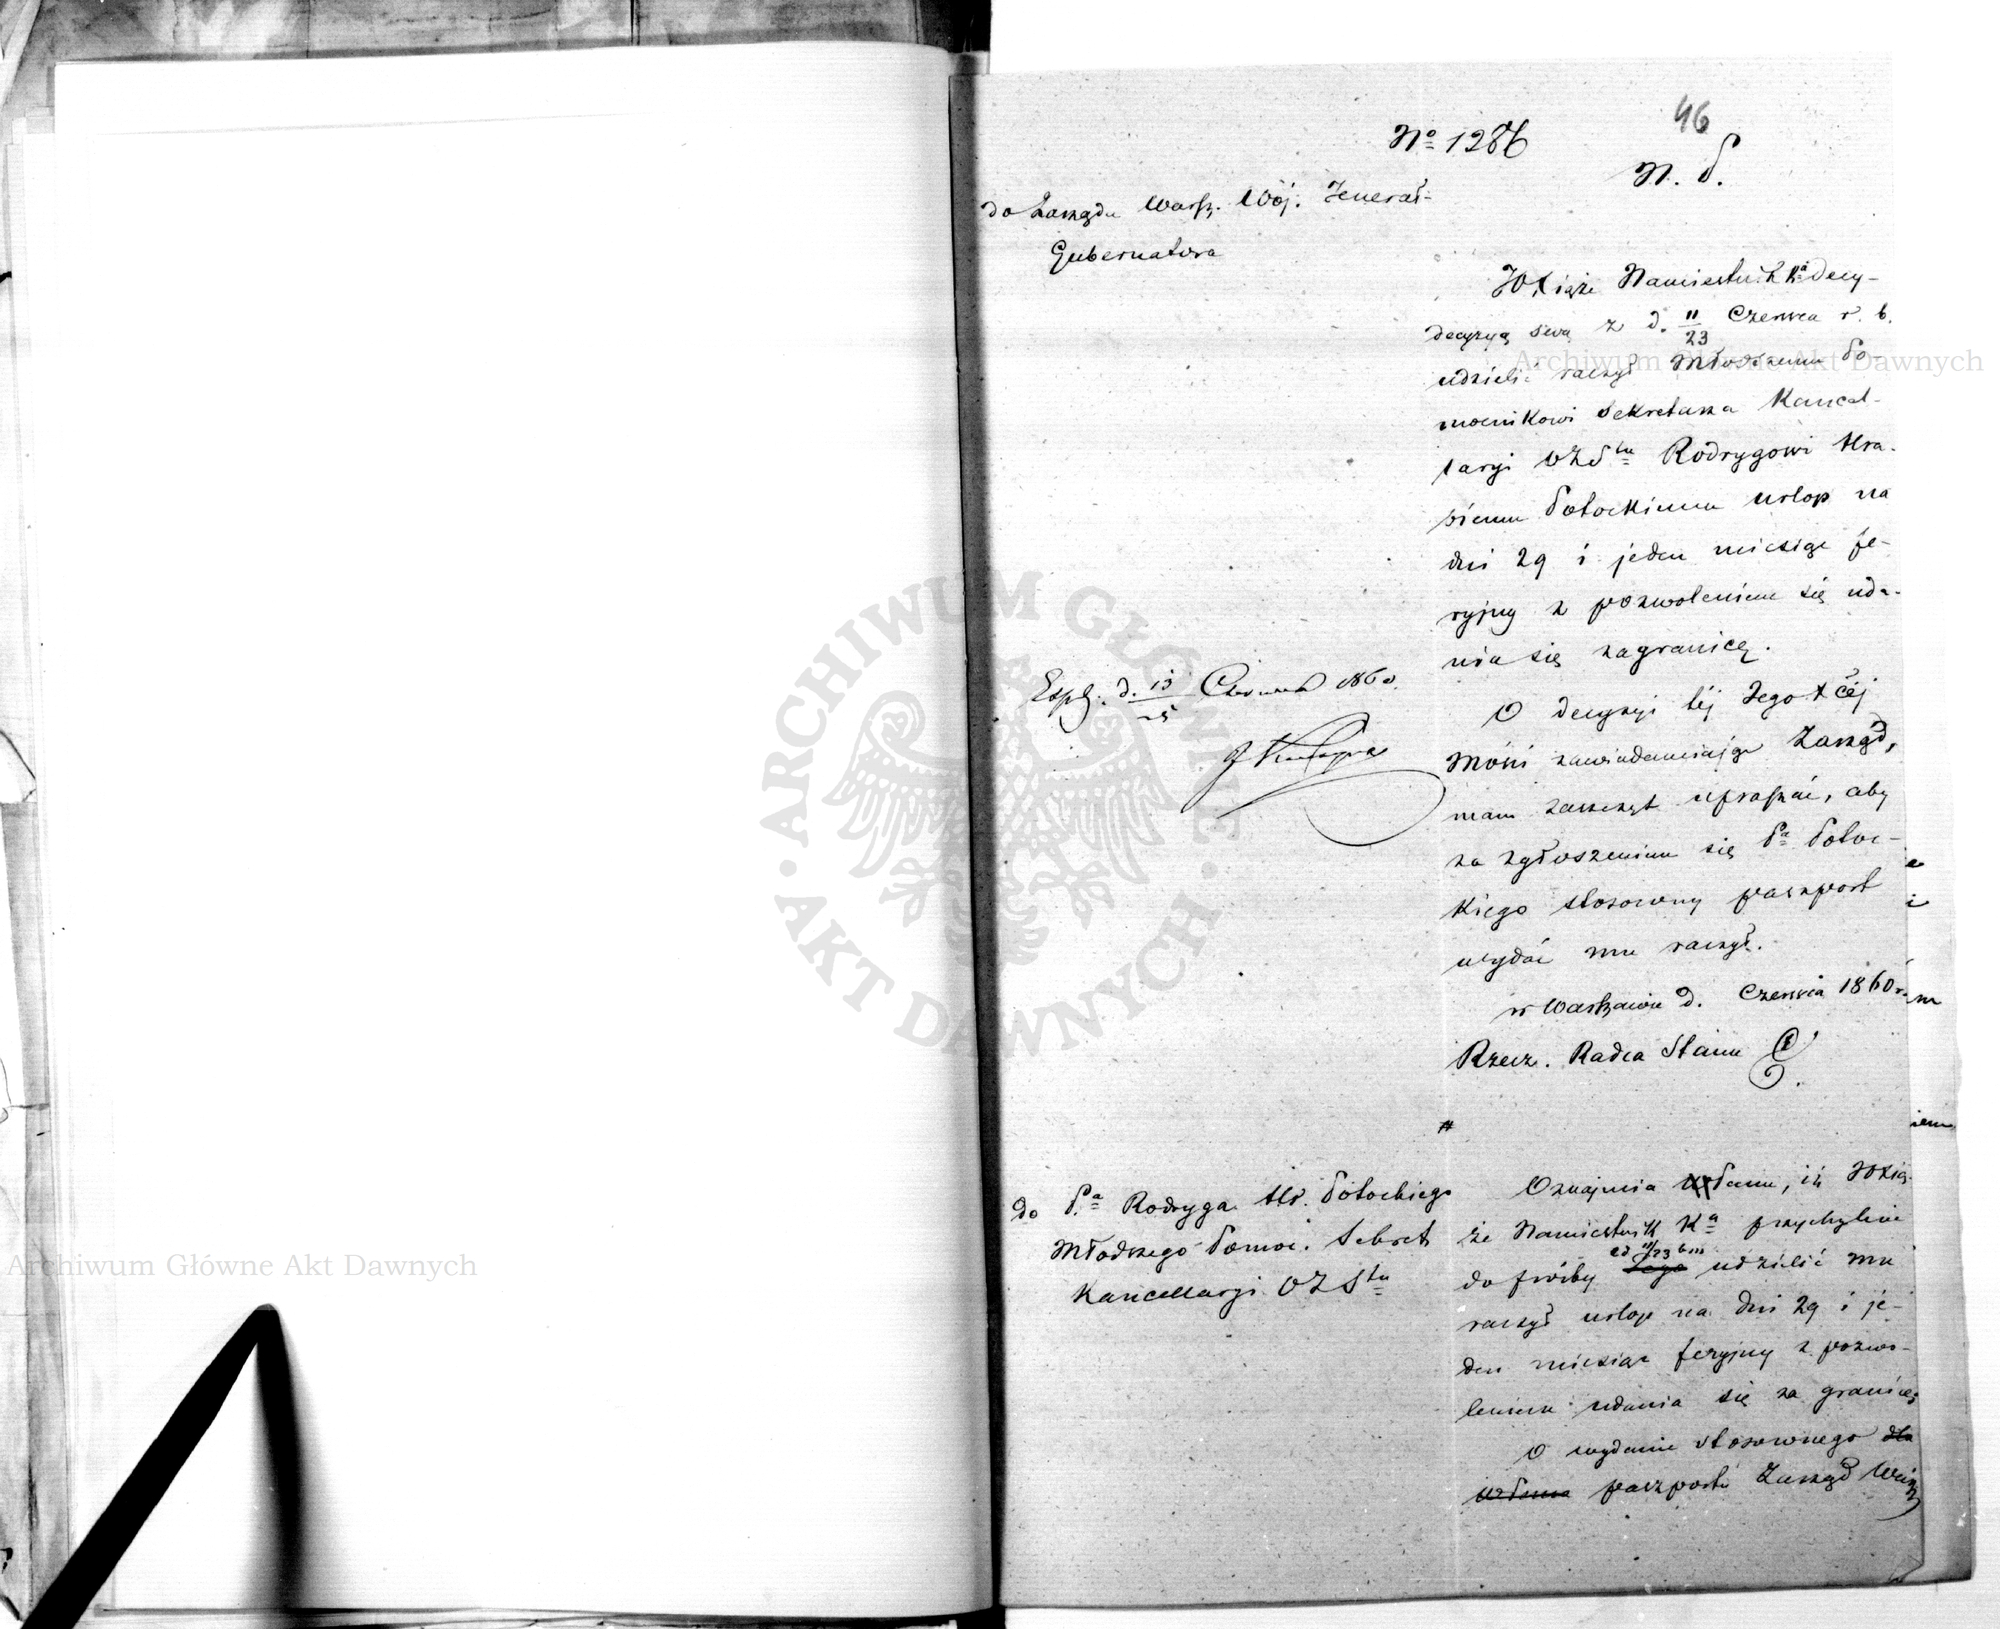 46
№ 1286
N. P.
do Zarządu Warsz. Woj. Jenerał-
Gubernatora
JO Xiąże Namiestnik Ka decy-
decyzyą swą z d. 11/23 Czerwca r. b.
udzielić raczył Młodszemu Po-
mocnikowi Sekretarza Kancel-
laryi OZS tu Rodrygowi Hra-
biemu Potockiemu urlop na
dni 29 i jeden miesiąc fe-
ryjny z pozwoleniem się uda-
nia się zagranicę.
Exp. d. 13/25 Czerwca 1860.
O decyzyi téj Jego Xcéj
Mości zawiadamiając Zarząd,
mam zaszczyt upraszać, aby
za zgłoszeniem się Pa Potoc-
kiego stosowny paszport
wydać mu raczył.
w Warszawie d. Czerwca 1860 r.
Rzecz. Radca Stanu
do P.a Rodryga Hr. Potockiego
Młodszego Pomoc. Sekret.
Kancellaryi OZS tu
Oznajmia Panu, iż JO Xią-
że Namiestnik Ka przychylnie
do prośby Jego ed 11/23 bm udzielić mu
raczył urlop na dni 29 i je-
den miesiąc feryjny z pozwo-
leniem udania się za granicę
O wydanie stosownego dla
paszportu Zarząd Warsz
Archiwum Główne Akt Dawnych
Archiwum Główne Akt Dawnych
ARCHIWUM GŁÓWNE AKT DAWNYCH